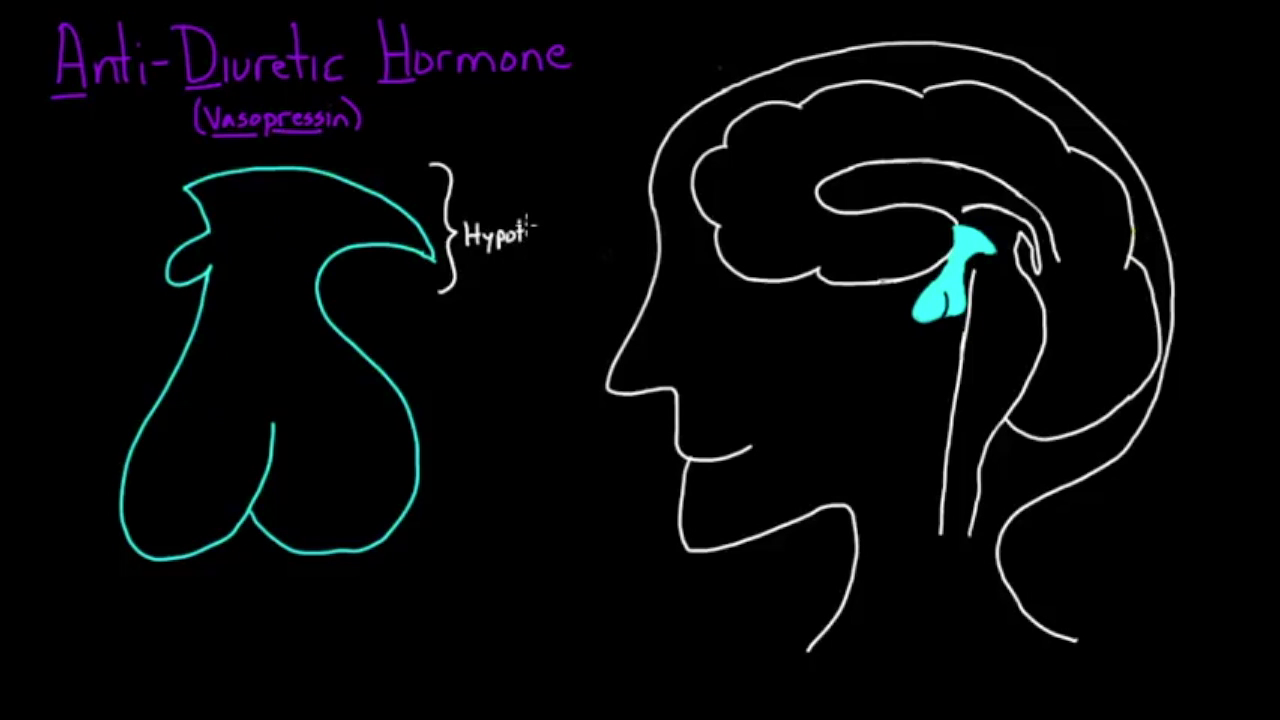 Anti-Diuretic Hormone
(Vasopressin)
Hypot